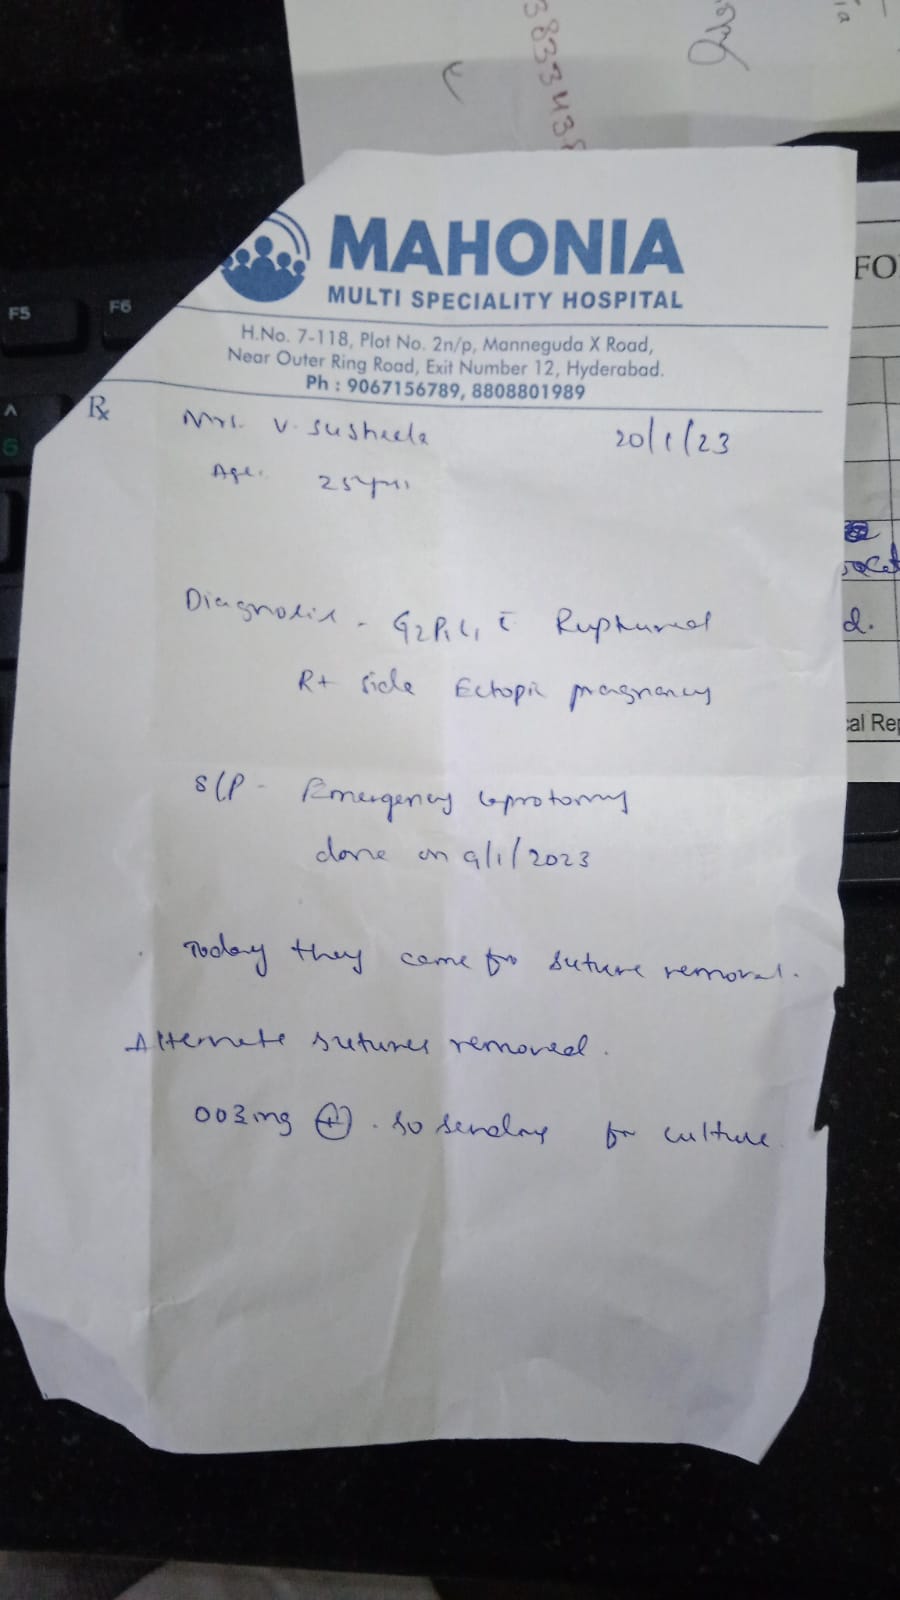 383343
MAHONIA
MULTI SPECIALITY HOSPITAL
H.No. 7-118, Plot No. 2n/p, Manneguda X Road,
Near Outer Ring Road, Exit Number 12, Hyderabad.
Ph : 9067156789, 8808801989
Rx
Mrs. V. Susheela 20/1/23
Age. 25yrs
Diagnosis - G2P1L1 c̄ Ruptured
Rt side Ectopic pragnancy
S/P - Emergency laprotomy
done on 9/1/2023
Today they came for suture removal.
Alternate sutures removed.
oozing (+). so sending for culture
FO
d.
cal Rep
F5
F6
6